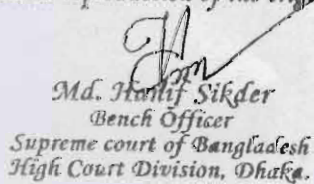 Md. Hanif Sikder
Bench Officer
Supreme court of Bangladesh
High Court Division, Dhaka.